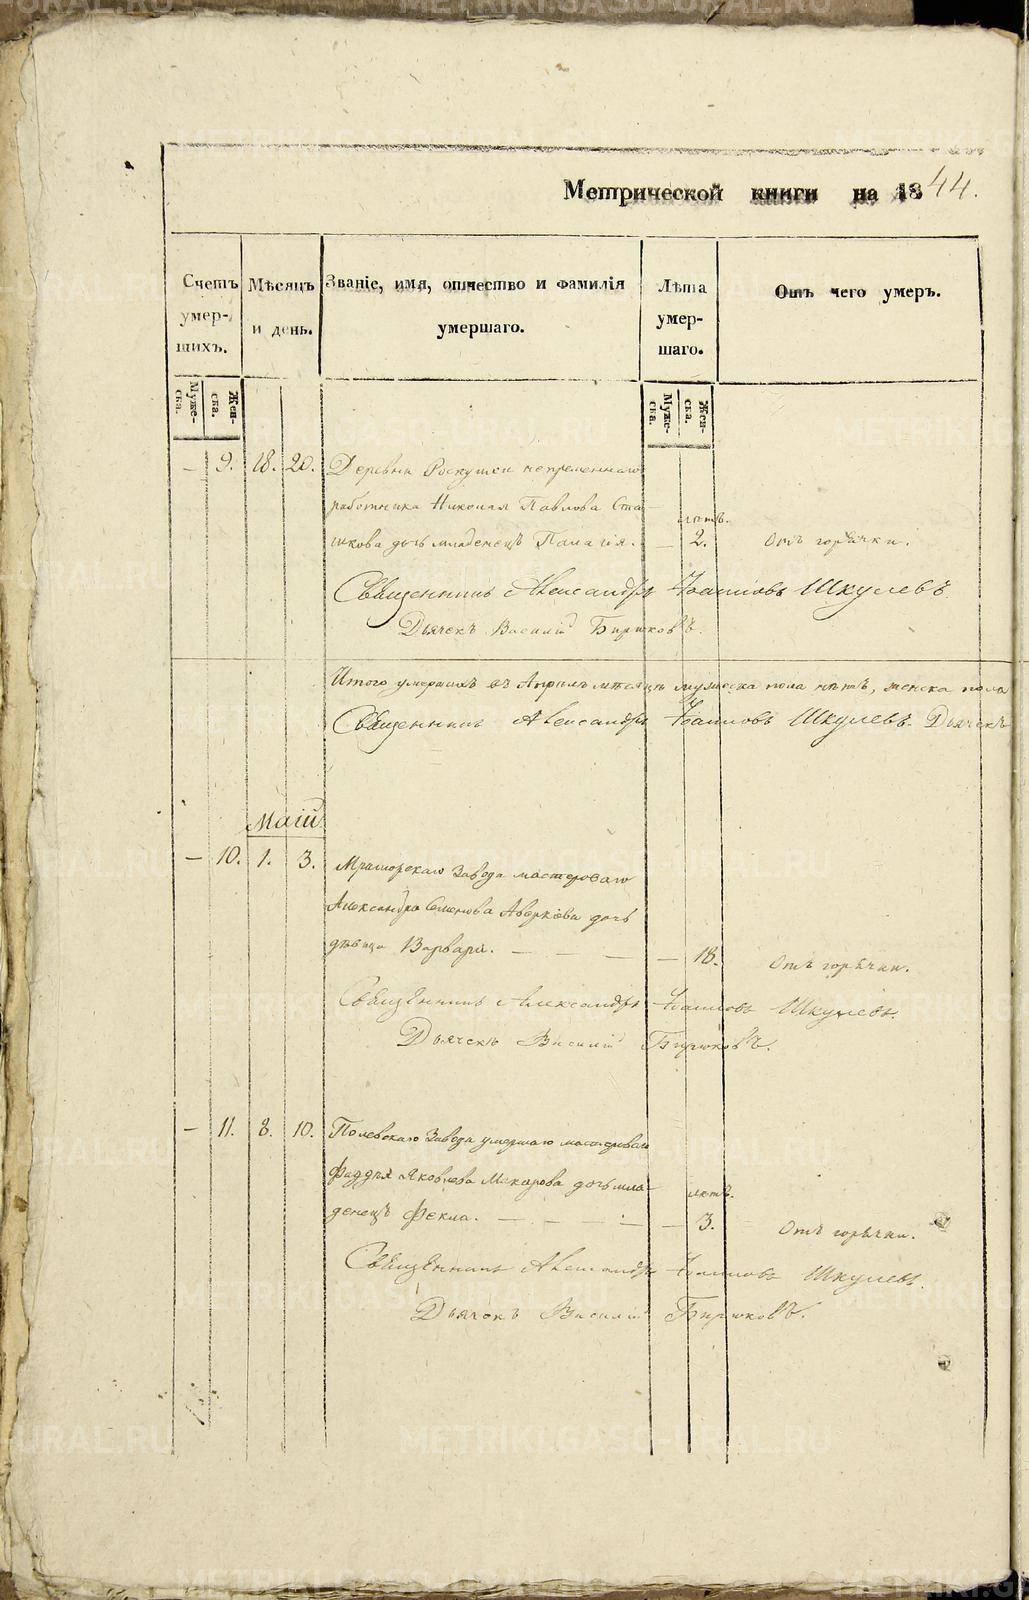 Метрической книги на 1844.
Счетъ умер-шихъ.
Мужеска.
Женска.
Мѣсяцъ и день.
Званіе, имя, отчество и фамилія умершаго.
Лѣта умер-шаго.
Мужеска.
Женска.
Отъ чего умеръ.
— 9. 18. 20. Деревни непременнаго
работника Николая Павлова Ста-
шкова дочь младенецъ Палагія. — лѣтъ. 2. Отъ горячки.
Священникъ Александръ Іоанновъ Шкулевъ
Дьячекъ Василій Бирюковъ.
Итого умершихъ въ Апрѣлѣ мѣсяцѣ мужеска пола нѣтъ, женска пола
Священникъ Александръ Іоанновъ Шкулевъ. Дьячекъ
Маій
— 10. 1. 3. Мраморскаго Завода мастероваго
Александра Семенова Аверкіева дочь
дѣвица Варвара. — — — — 18. Отъ горячки.
Священникъ Александръ Іоанновъ Шкулевъ.
Дьячекъ Василій Бирюковъ.
— 11. 8. 10. Полевскаго Завода умершаго мастероваго
Фаддѣя Яковлева Макарова дочь мла-
денецъ Фекла. — — — — — лѣтъ. 3. Отъ горячки.
Священникъ Александръ Іоанновъ Шкулевъ.
Дьячекъ Василій Бирюковъ.
METRIKI.GASO-URAL.RU